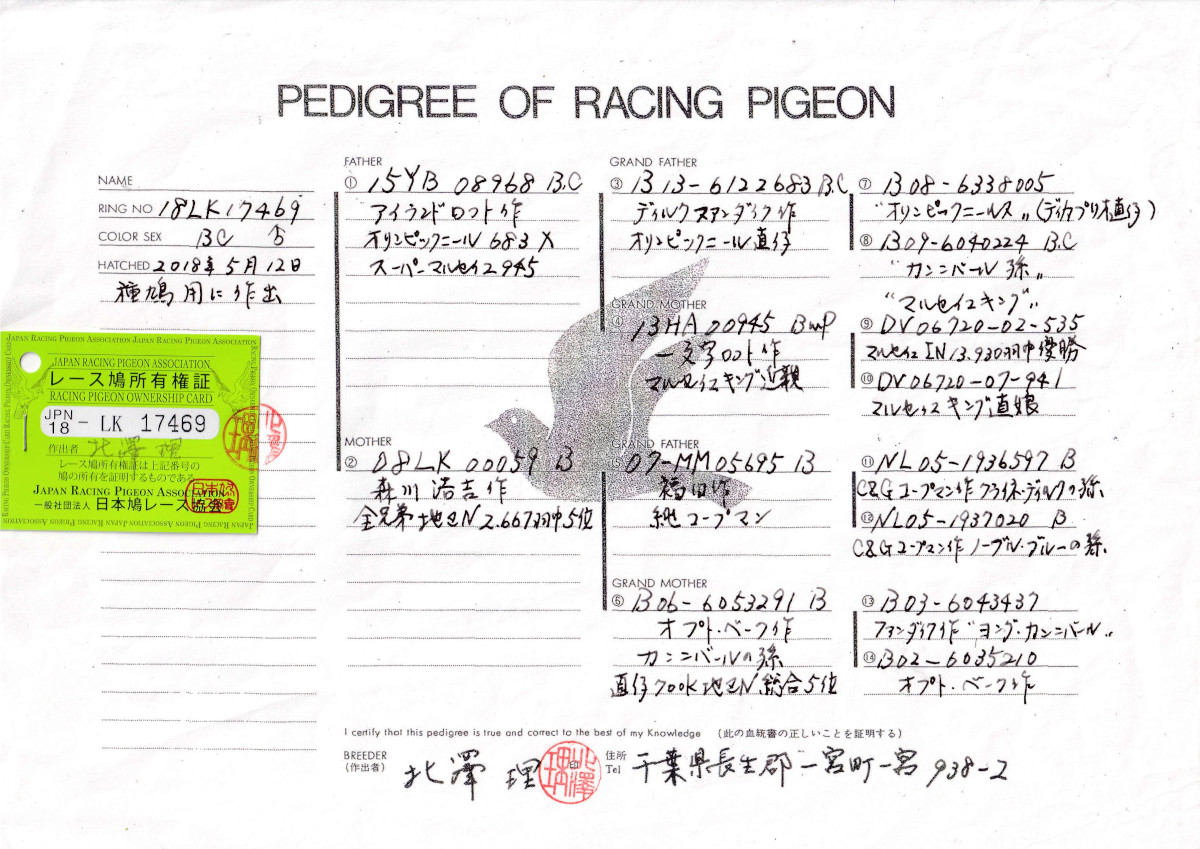 PEDIGREE OF RACING PIGEON
NAME
RING NO 18LK17469
COLOR SEX BC ♂
HATCHED 2018年5月12日
種鳩用に作出
JAPAN RACING PIGEON ASSOCIATION
レース鳩所有権証
RACING PIGEON OWNERSHIP CARD
JPN 18 - LK 17469
作出者 北澤 理
レース鳩所有権証は上記番号の
鳩の所有を証明するものである
JAPAN RACING PIGEON ASSOCIATION
一般社団法人 日本鳩レース協会
FATHER
① 15YB 08968 B.C
アイランドロフト作
オリンピックニール 683 X
スーパーマルセイユ945
MOTHER
② 08LK 00059 B
森川 浩吉 作
全兄弟 地区N 2.667羽中5位
GRAND FATHER
③ B13-6122683 B.C
ディルクファンダイク作
オリンピックニール直仔
GRAND MOTHER
④ 13HA 00945 BWP
一文字ロフト作
マルセイユキング近親
GRAND FATHER
07-MM05695 B
福田作
純コープマン
GRAND MOTHER
⑤ B06-6053291 B
オプト・ベーク作
カンニバールの孫
直仔700K地区N総合5位
⑦ B08-6338005
"オリンピックニールス" (ディカプリオ直仔)
⑧ B09-6040224 B.C
"カンニバール孫"
"マルセイユキング"
⑨ DV06720-02-535
マルセイユIN13.930羽中優勝
⑩ DV06720-07-941
マルセイユキング直娘
⑪ NL05-1936597 B
C&Gコープマン作クライネ・ディルクの孫
⑫ NL05-1937020 B
C&Gコープマン作ノーブル・ブルーの孫
⑬ B03-6043437
ファンダイク作"ヨング・カンニバール"
⑭ B02-6035210
オプト・ベーク作
I certify that this pedigree is true and correct to the best of my Knowledge (此の血統書の正しいことを証明する)
BREEDER
(作出者) 北澤 理 印
住所
Tel 千葉県長生郡一宮町一宮 938-2